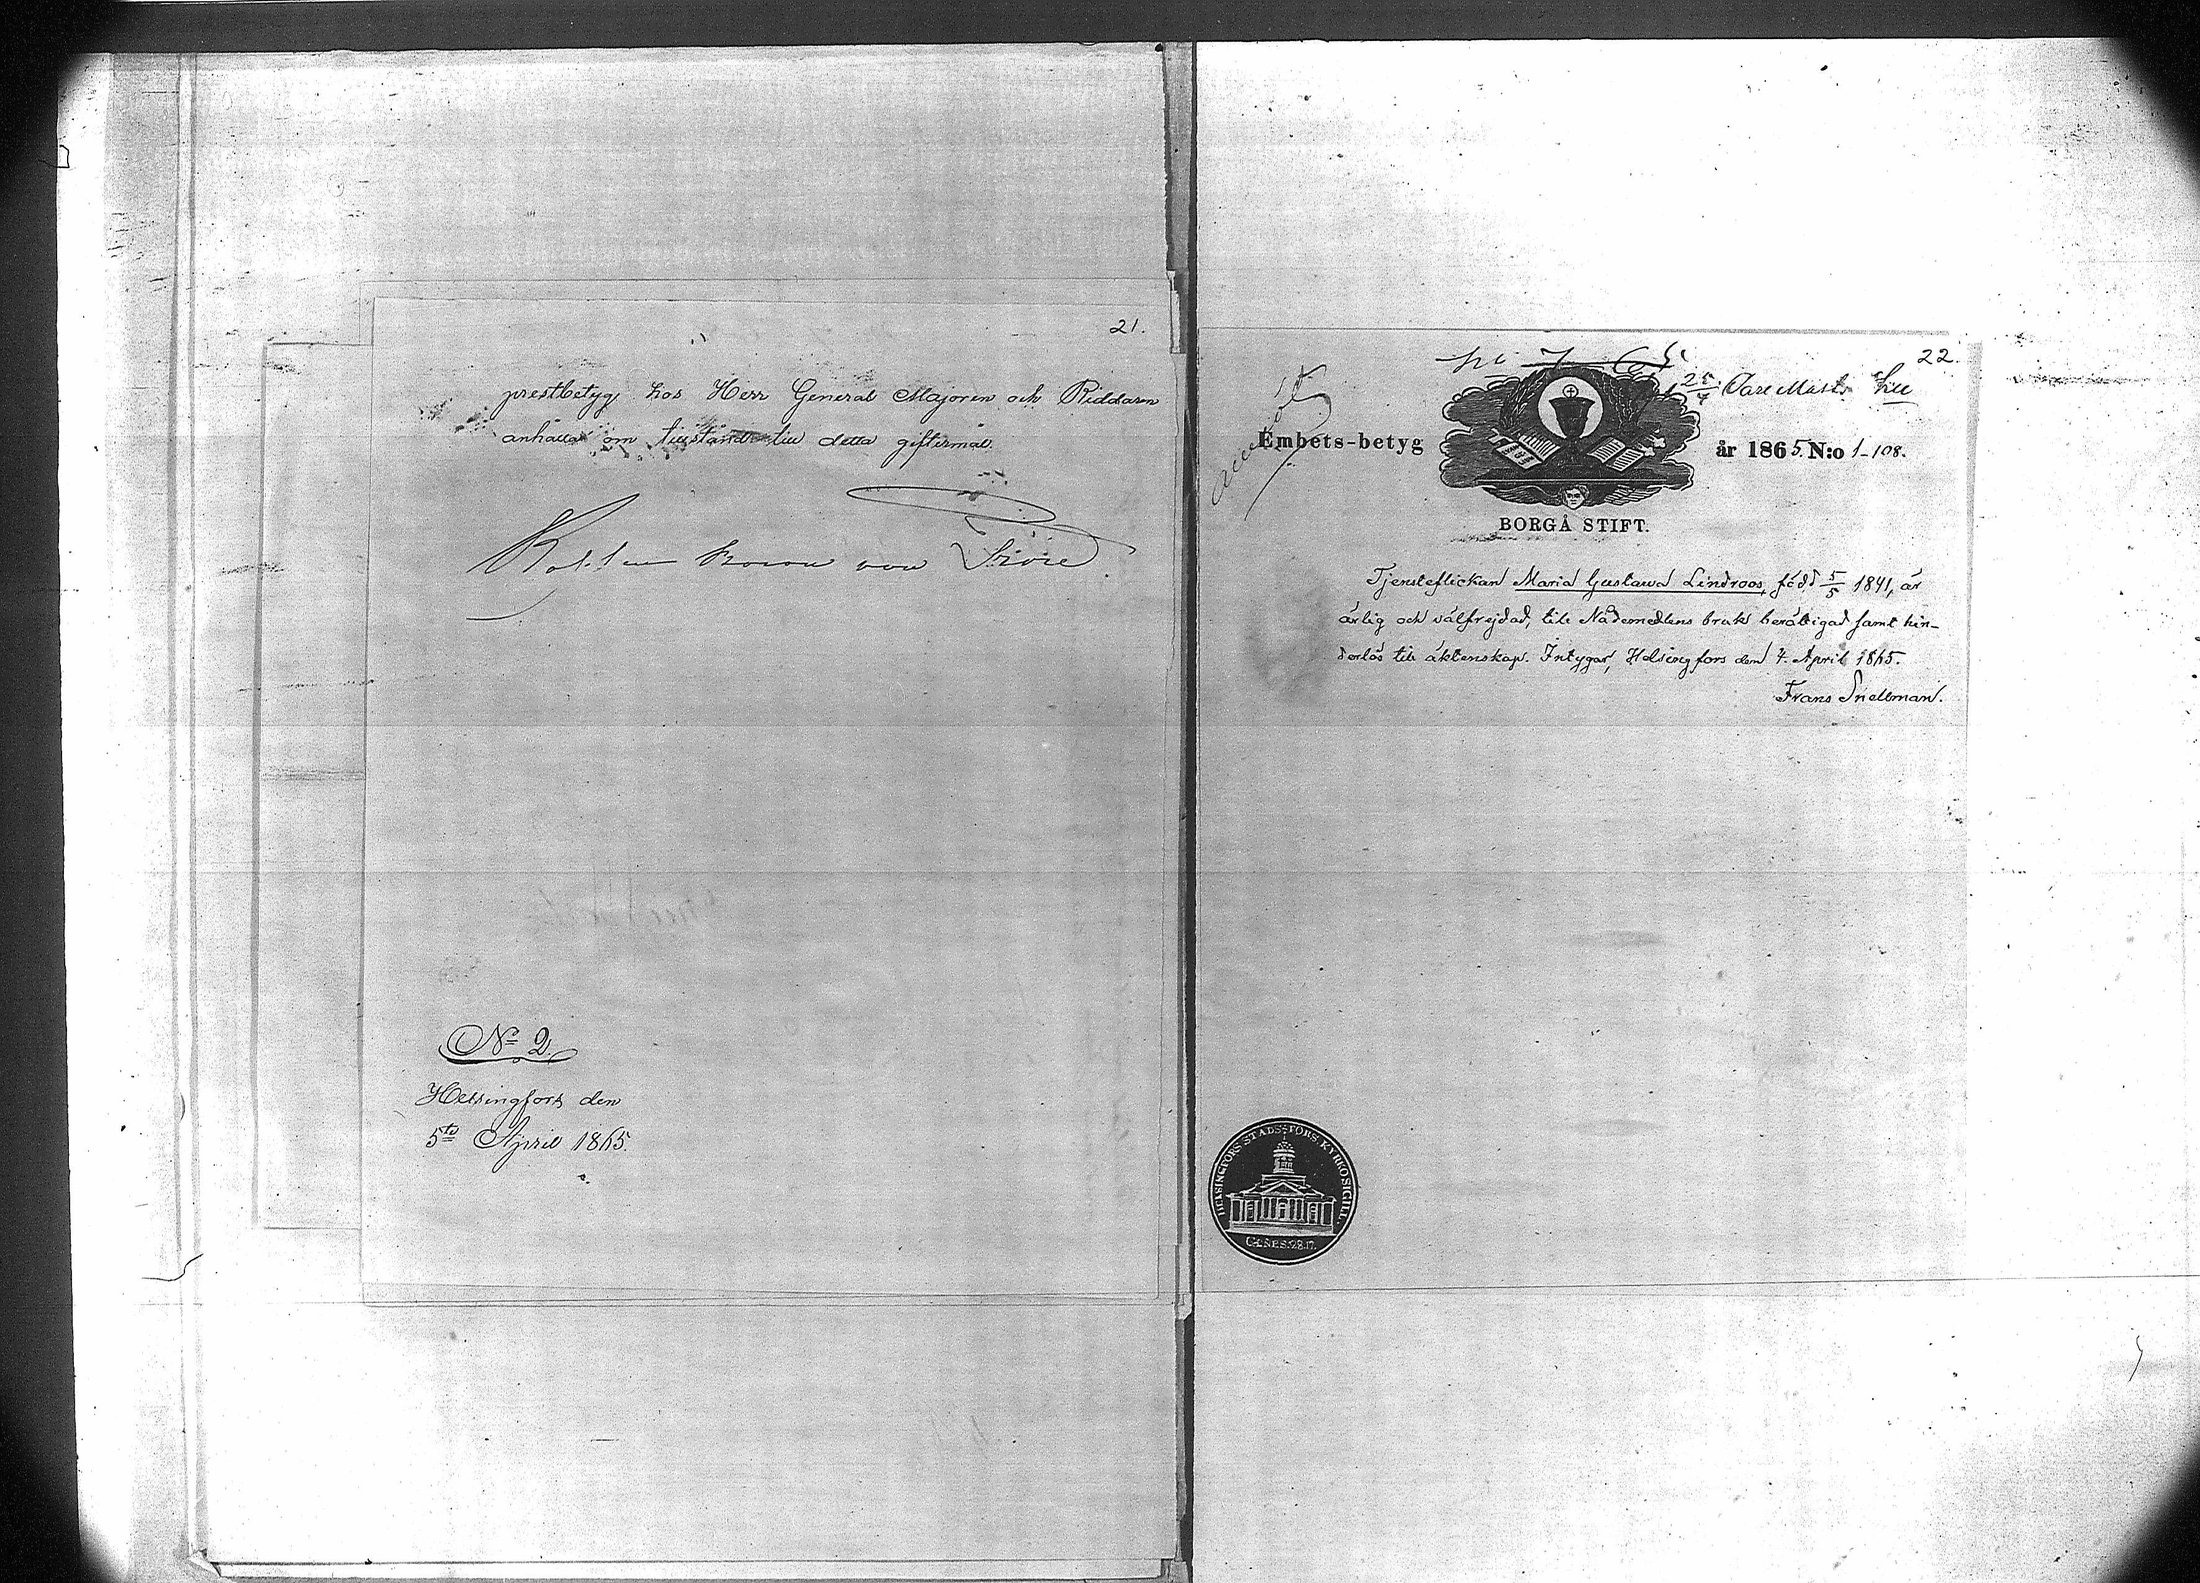 21.
prestbetyg hos Herr General Majoren och Riddaren
anhålla om tillstånd till detta giftermål.
von
No 2.
Helsingfors den
5te April 1865.
22.
25/4
Embets-betyg år 1865. N:o 1-108.
BORGÅ STIFT.
Tjensteflickan Maria Gustava Lindroos, född 5/5 1841, är
ärlig och välfrejdad, till Nådemedlens bruk berättigad samt hin-
derlös till äktenskap. Intygar, Helsingfors den 4. April 1865.
Frans Snellman.
HELSINGFORS STADS FÖRS. KYRKOSIGILL.
GENES. 28.17.